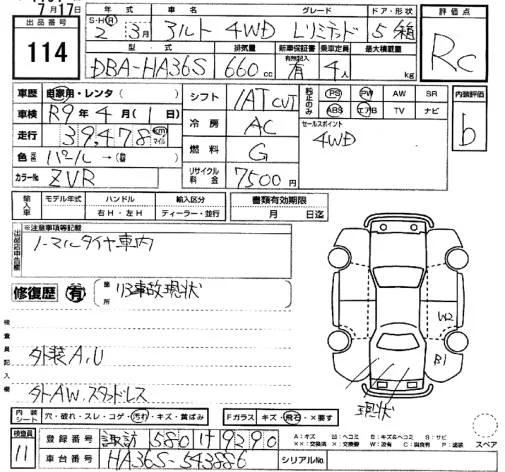 7月17日
出品番号 114
年式 S・H・R 2年3月
車名 アルト 4WD
グレード Lリミテッド
ドア・形状 5 箱
評価点 RC
型式 DBA-HA36S
排気量 660cc
新車保証書 有無記入 有
乗車定員 4人
最大積載量 kg
車歴 自家用・レンタ( )
車検 R9年4月(1日)
走行 39,478 km マイル
色 パール→( )
カラーNo ZVR
シフト IAT CVT
冷房 AC
燃料 G
リサイクル料金 7500円
純正のみ PS PW AW SR
ABS エアB TV ナビ
セールスポイント
4WD
内装評価 b
輸入車 モデル年式 年 ハンドル 右H・左H 輸入区分 ディーラー・並行
書類有効期限 月 日迄
出品店申告欄 ※注意事項等記載
ノーマルタイヤ車内
修復歴 有 箇所 リヤ事故現状
検査員記入欄
外装A,U
社外AW.スタッドレス
W2
B1
現状
内装シート 穴・破れ・スレ・コゲ・汚れ・キズ・黄ばみ
Fガラス キズ・飛石・×要す
検査員 11
登録番号 諏訪 580 け 9290
車台番号 HA36S-543886
シリアルNo
A:キズ U:ヘコミ B:キズ&ヘコミ S:サビ
××:交換済 X:要交換 W:波 C:腐食有 P:塗装
スペア